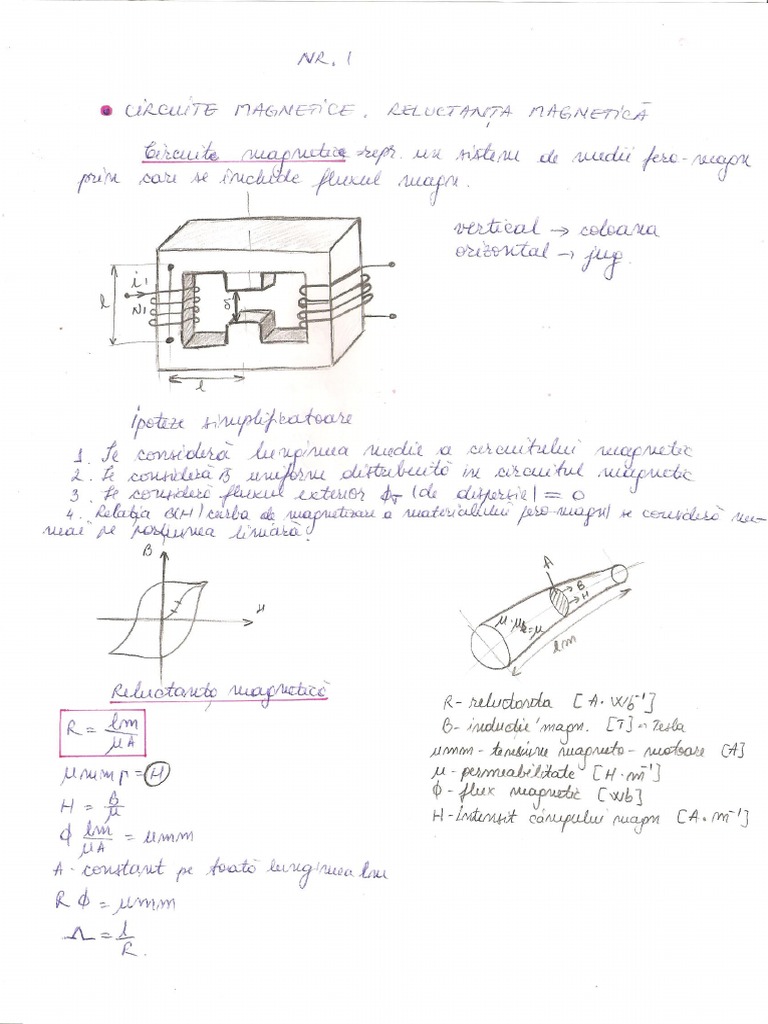 NR. 1
• CIRCUITE MAGNETICE. RELUCTANȚA MAGNETICĂ
Circuite magnetice = repr. un sistem de medii fero-magn
prin care se închide fluxul magn.
vertical → coloana
orizontal → jug.
l
i1
N1
δ
l
Ipoteze simplificatoare
1. Se consideră lungimea medie a circuitului magnetic
2. Se consideră B uniform distribuită in circuitul magnetic
3. Se consideră fluxul exterior ϕσ (de dispersie) = 0
4. Relația B(H) (curba de magnetizare a materialului fero-magn) se consideră nu-
mai pe porțiunea liniară.
B
H
A
B
H
lm
Reluctanța magnetică
R = lm/μA
H = B/μ
ϕ lm/μA = umm
A - constant pe toată lungimea lm
R ϕ = umm
Λ = 1/R.
R - reluctanda [A·Wb⁻¹]
B - inductie magn. [T] = Tesla
umm - tensiune magneto-motoare [A]
μ - permeabilitate [H·m⁻¹]
ϕ - flux magnetic [Wb]
H - Intensit câmpului magn [A·m⁻¹]